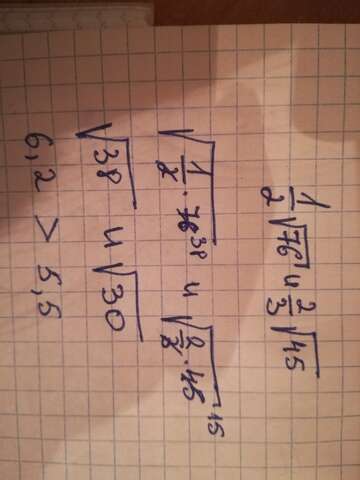 1/2 √76 и 2/3 √45
√1/2 · 76 38 и √2/3 · 45 15
√38 и √30
6,2 > 5,5